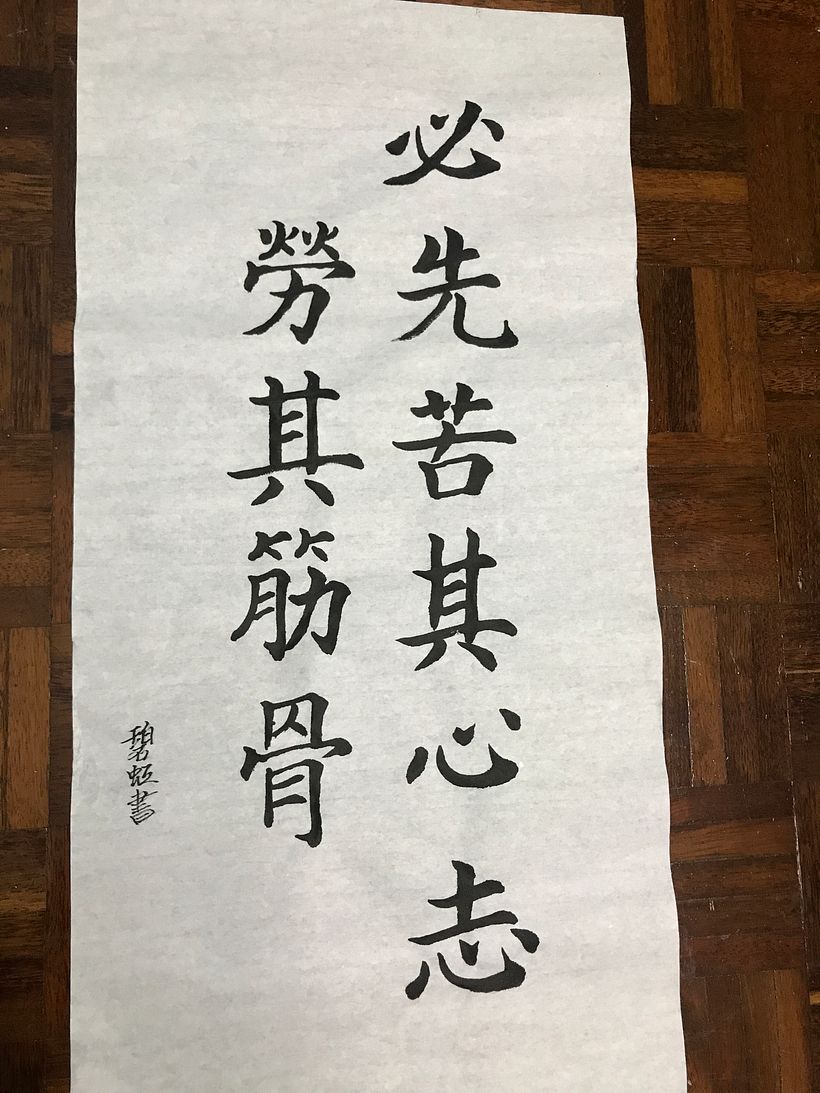 必先苦其心志
勞其筋骨
碧虹書